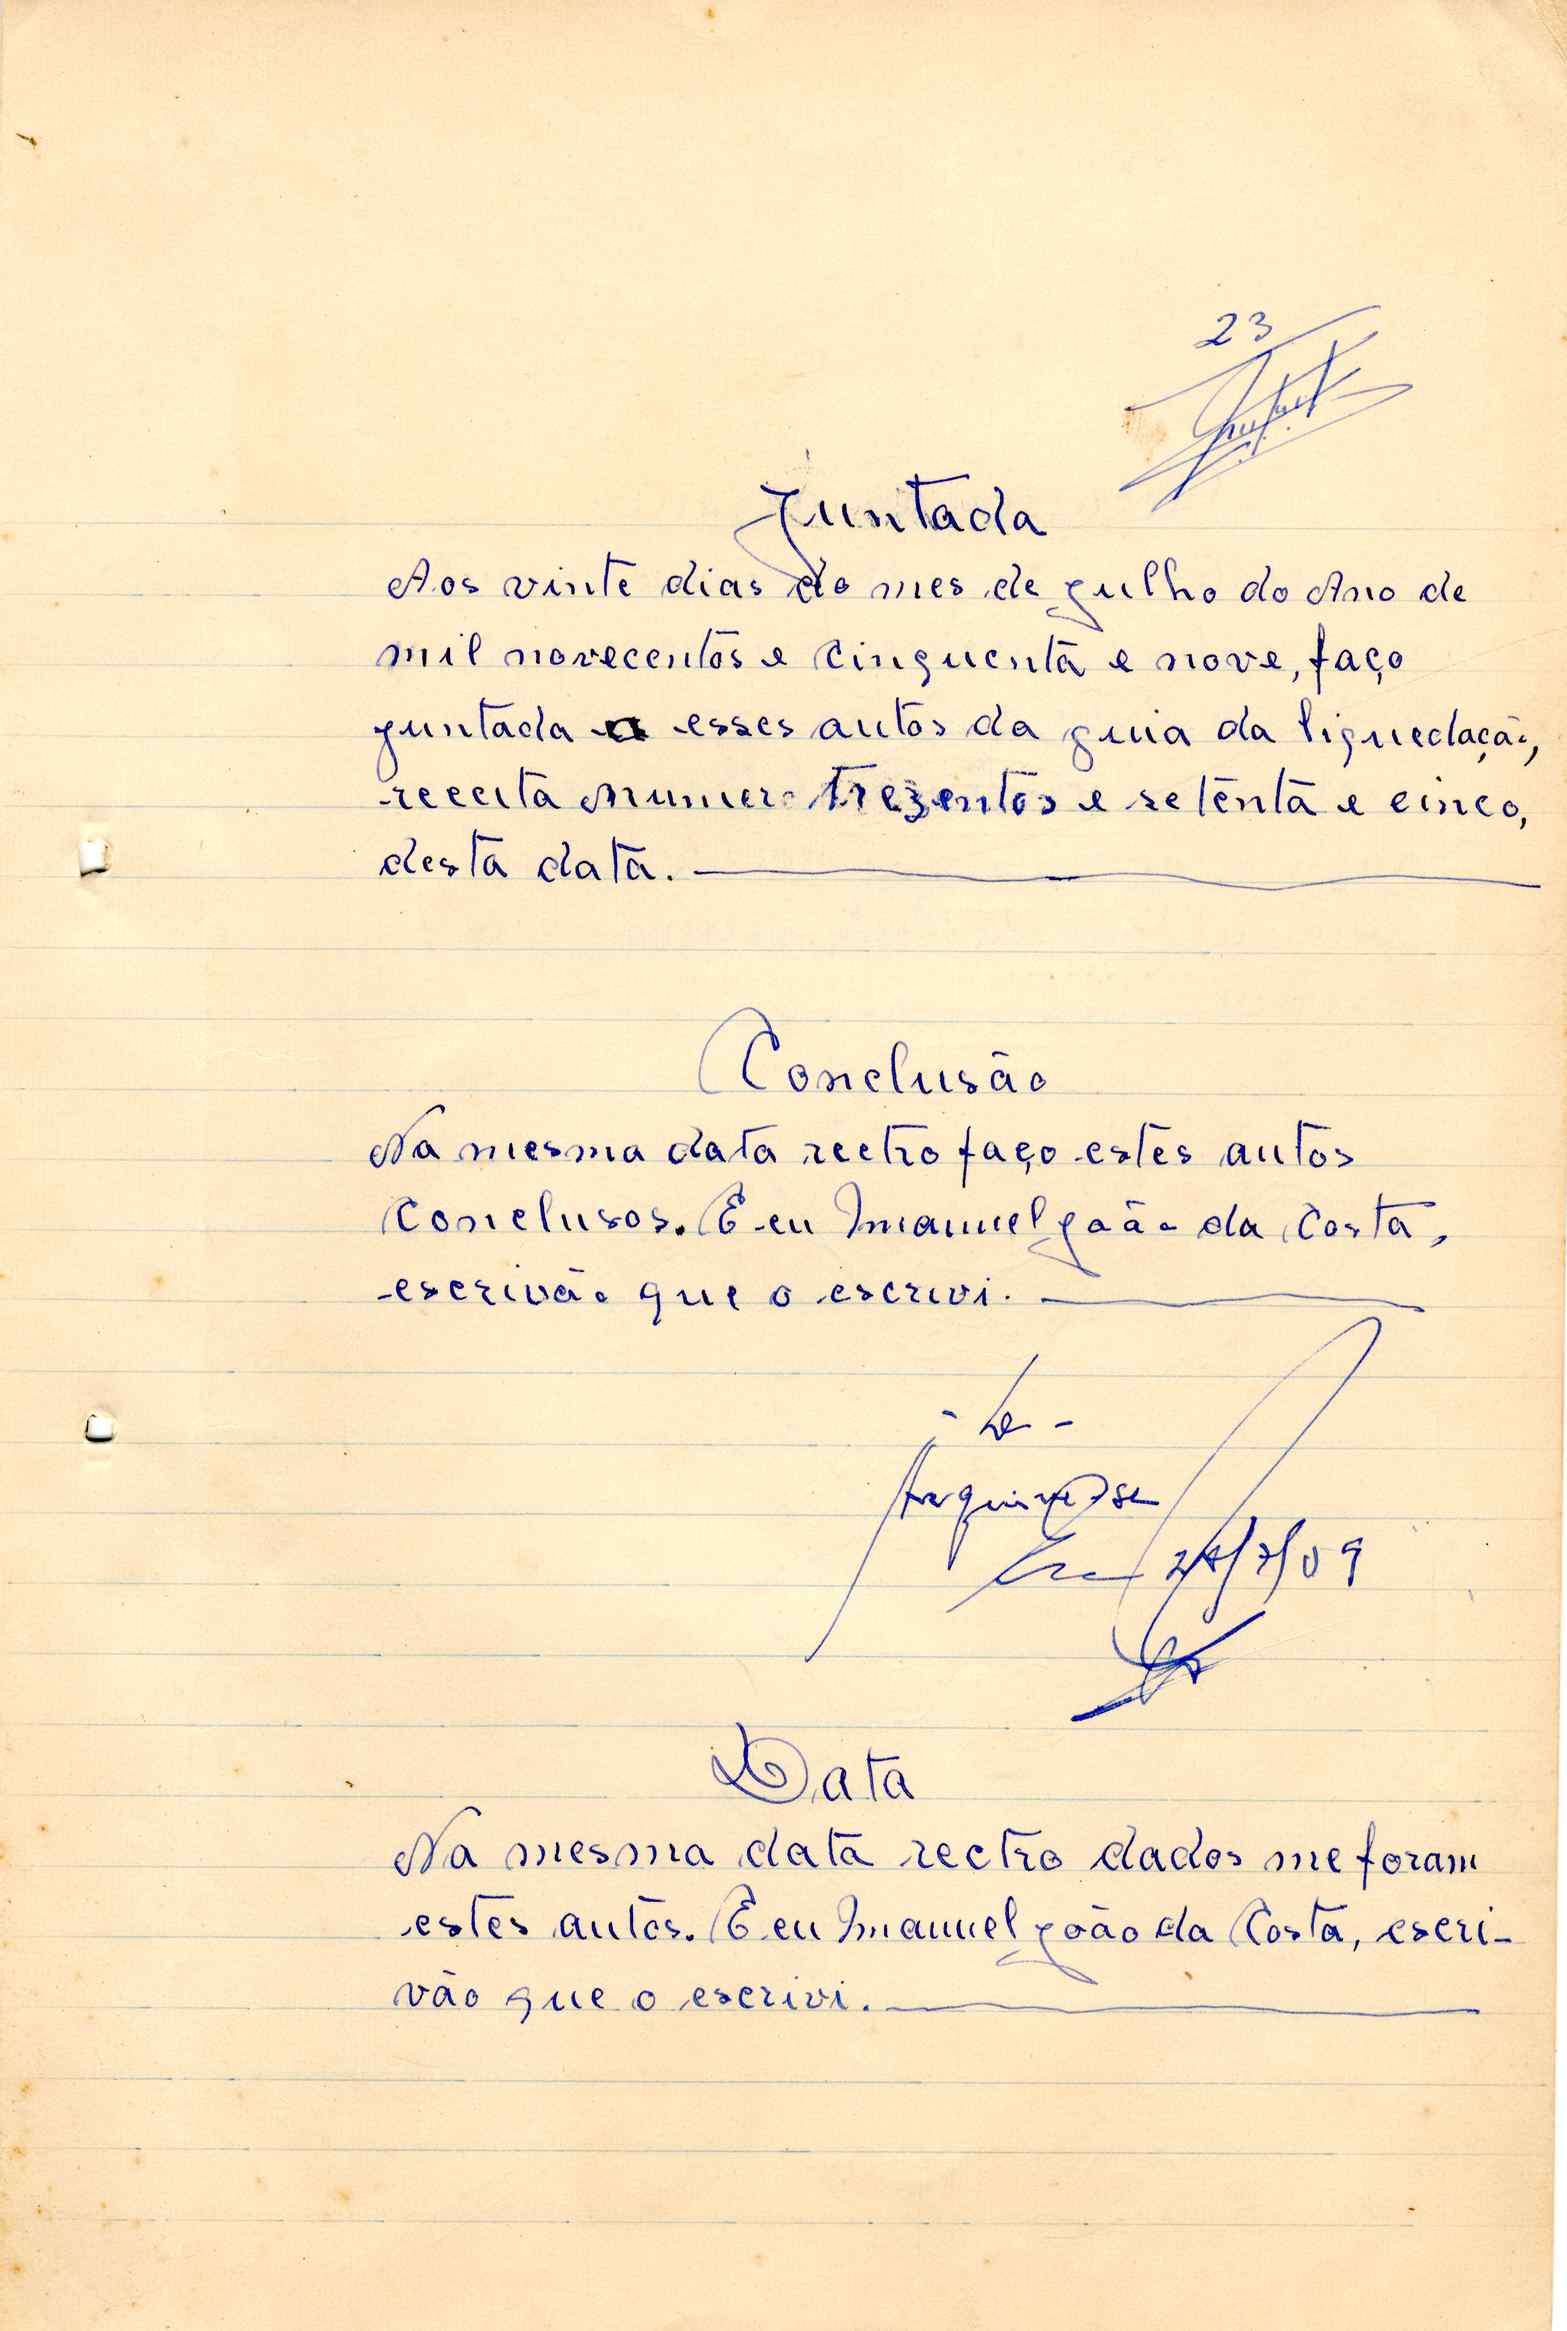 23
Juntada
Aos vinte dias do mes de julho do Ano de
mil novecentos e cinquenta e nove, faço
juntada a esses autos da guia da liquedação,
receita numero trezentos e setenta e cinco,
desta data.
Conclusão
Na mesma data rectro faço estes autos
conclusos. E eu Imanuel João da Costa,
escrivão que o escrevi.
Arquive-se
Data
Na mesma data rectro dados me foram
estes autos. E eu Imanuel João da Costa, escri-
vão que o escrivi.